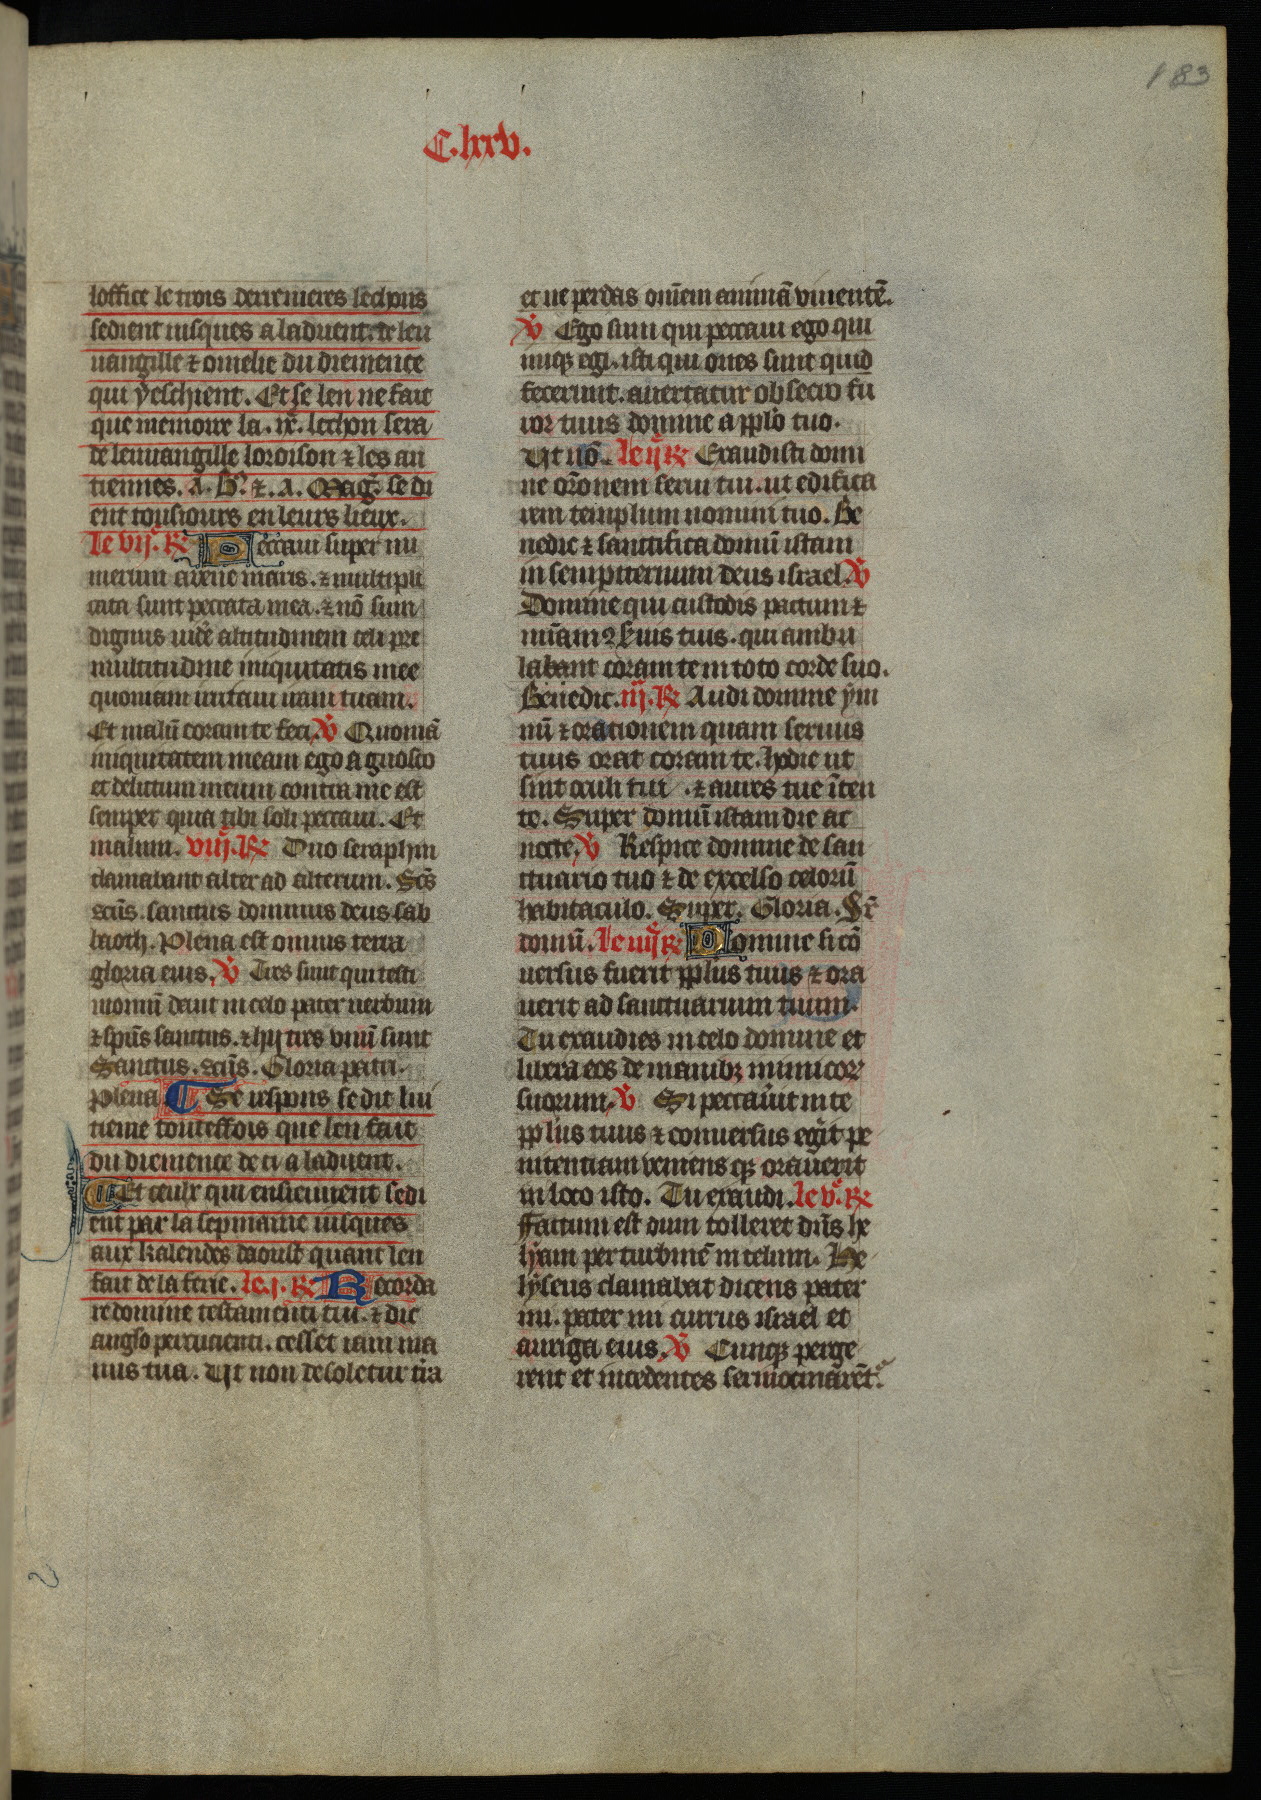 183
C.lxxv.
loffice le trois derrenieres lechons
sedient iusques a laduent. de leu
uangille ⁊ omelie du diemence
qui y eschient. Et se len ne fait
que memoire la .ix̄. lechon sera
de leuuangille loroison ⁊ les an
tiennes. A. B̄. ⁊ .A. Mag̃. se di
ent tousiours en leurs lieux.
le vij. ℟ Peccaui super nu
merum arene maris. ⁊ multipli
cata sunt peccata mea. ⁊ nõ sum
dignus uidẽ altitudinem celi pre
multitudine iniquitatis mee
quoniam irritaui iram tuam.
Et malũ coram te feci ℣ Quoniã
iniquitatem meam ego agnosco
et delictum meum contra me est
semper quia tibi soli peccaui. Et
malum. viij. ℟ Duo seraphin
clamabant alter ad alterum. Sc̃s
sc̃us. sanctus dominus deus sab
baoth. Plena est omnis terra
gloria eius. ℣ Tres sunt qui testi
moniũ dant in celo pater uerbum
⁊ sp̃us sanctus. ⁊ hij tres vnũ sunt
Sanctus. sc̃us. Gloria patri.
Plena ¶ Se respons se dit hui
tieme toutesfois que len fait
du diemence de ci a laduent.
¶ Et ceulx qui ensieuuent sedi
ent par la sepmaine iusques
aux kalendes daoust quant len
fait de la ferie. le .j. ℟ Recorda
re domine testamenti tui. ⁊ dic
anglo percucienti. cesset iam ma
nus tua. Ut non desoletur tr̃a
et ne perdas om̃em animã viuentẽ.
℣ Ego sum qui peccaui ego qui
iniq̃ egi. isti qui oues sunt quid
fecerunt. auertatur obsecro fu
ror tuus domine a pplo tuo.
Ut nõ. le ij ℟ Exaudisti domi
ne orõnem serui tui. ut edifica
rem templum nomini tuo. Be
nedic ⁊ sanctifica domũ istam
in sempiternum deus israel. ℣
Domine qui custodis pactum ⁊
mĩam ꝯ s̃uis tuis. qui ambu
labant coram te in toto corde suo.
Benedic. iij. ℟ Audi domine ym
nũ ⁊ orationem quam seruus
tuus orat coram te. hodie ut
sint oculi tui . ⁊ aures tue ĩten
te. Super domũ istam die ac
nocte. ℣ Respice domine de san
ctuario tuo ⁊ de excelso celorũ
habitaculo. Super. Gloria. Sr̃
domũ. le iiij ℟ Domine si cõ
uersus fuerit pplus tuus ⁊ ora
uerit ad sanctuarium tuum.
Tu exaudies in celo domine et
libera eos de manibꝫ inimicoꝝ
suorum. ℣ Si peccauit in te
pplus tuus ⁊ conuersus egĩt pe
nitentiam veniens qꝫ orauerit
in loco isto. Tu exaudi. le v. ℟
Factum est dum tolleret dñs he
lyam per turbinẽ in celum. He
lyseus clamabat dicens pater
mi. pater mi currus israel et
auriga eius. ℣ Cumqꝫ perge
rent et incedentes sermocinarẽt.